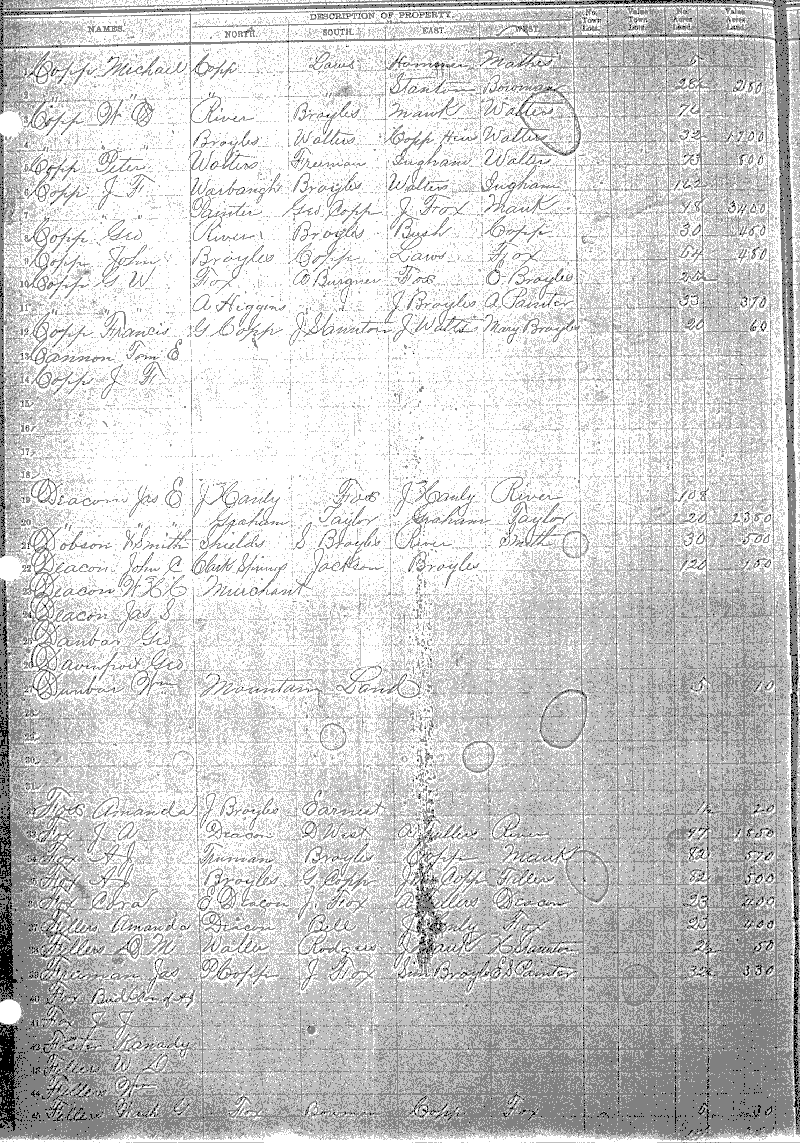 DESCRIPTION OF PROPERTY.
NAMES. NORTH. SOUTH. EAST. WEST. No. Town Lots. Value Town Lots. No. Acres Land. Value Acres Land.
1 Copp Michael Copp Laws Hammer Mathes 5
2 " " Stanton Bowman 28 280
3 Copp W B River Broyles Mauk Walters
4 " " Broyles Walters Copp Heir Walters 32 1700
5 Copp Peter Walters Freeman Ingham Walter 73 800
6 Copp J F Warbaugh Broyles Walters Ingham 162
7 " " Painter Geo Copp J. Fox Mauk 48 3400
8 Copp Geo River Broyles Bush Copp 30 450
9 Copp John Broyles Copp Laws Fox 64 480
10 Copp G W Fox Burgner Fox E Broyles
11 " " A Higgins " J Broyles A Painter 33 370
12 Copp Francis G Copp J Stanton J Walts Mary Broyles 20 60
13 Cannon Tom E
14 Copp J F
15
16
17
18
19 Deacon Jas E J Hanly Fox J Hanly River 108
20 " " Graham Taylor Graham Taylor 20 2380
21 Dobson & Smith Shields S Broyles River Smith 30 500
22 Deacon John C Clark Springs Jackson Broyles 120 450
23 Deacon W H C Merchant
24 Deacon Jas S
25 Dunbar Geo
26 Davenport Geo
27 Dunbar Wm Mountain Land 5 10
28
29
30
31
32 Fox Amanda J Broyles Earnest 20
33 Fox J A Deacon D West Fellers River 47 1850
34 Fox A J Truman Broyles Copp Mauk 82 570
35 Fox A J Broyles G Copp Copp Feller 52 500
36 Fox Cora E Deacon J. Fox Fellers Deacon 23 400
37 Fellers Amanda Deacon Bell Fox 23 400
38 Fellers D M Walter Rodgers 50
39 Freeman Jas P Copp J Fox Broyles Painter 32 330
40 Fox
41 Fox J J
42 Foster Kanady
43 Fellers W D
44 Fellers Wm
45 Fellers Fox Bowman Copp Fox 5 30